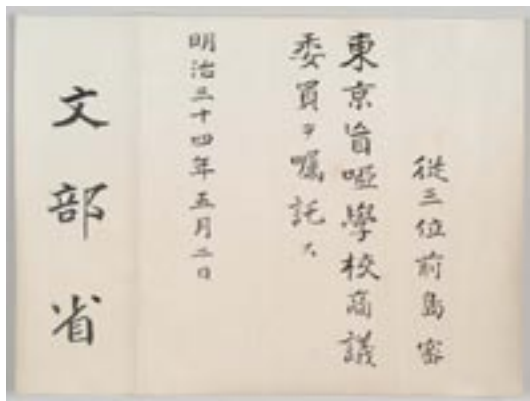 従三位前島密
東京盲唖學校商議
委員ヲ嘱託ス
明治三十四年五月二日
文部省